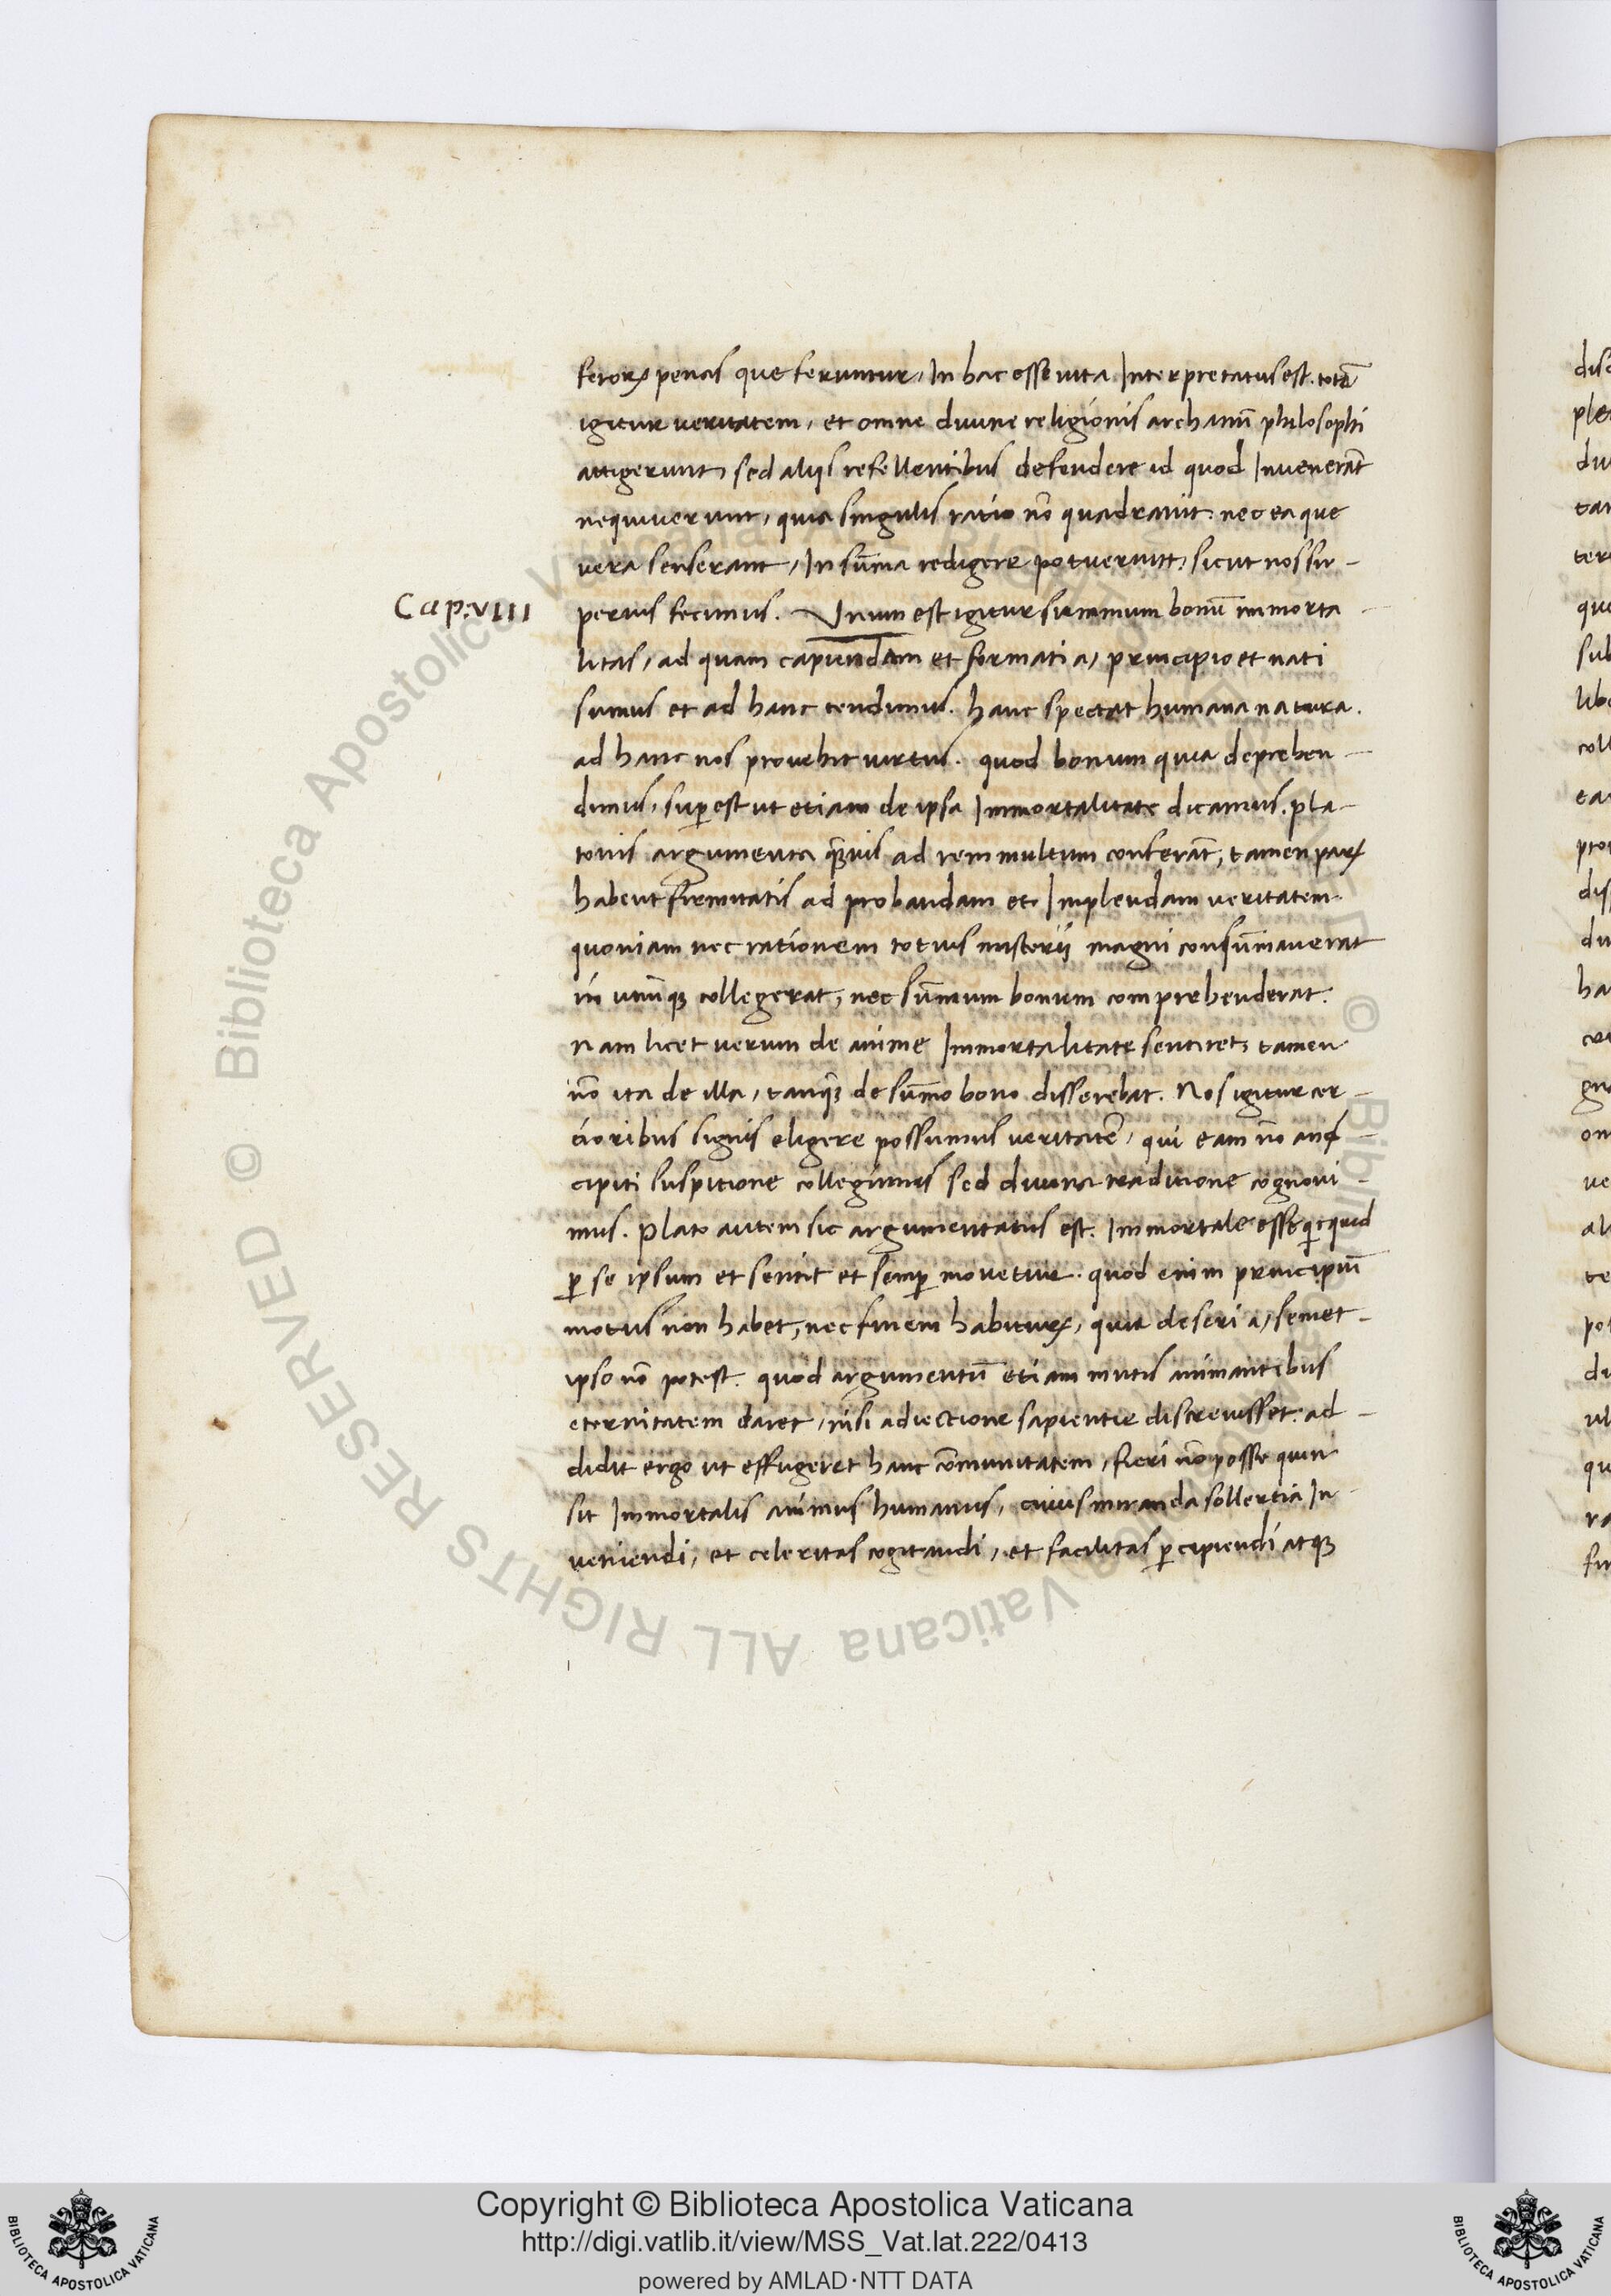 feroꝝ penas que feruntur, In hac esse uita Interpretatus est. totā
igitur ueritatem, et omne diuine religionis archanū philosophi
attigerunt, sed aliis refellentibus defendere id quod Inuenerāt
nequiuerunt, quia singulis ratio nō quadrauit. nec ea que
uera senserant, In sūma redigere potuerunt, sicut nos su-
Cap: VIII
perius fecimus. Vnum est igitur summum bonū immorta-
litas, ad quam capiundam et formati a, principio et nati
sumus et ad hanc tendimus. hanc spectat humana natura.
ad hanc nos prouehit uirtus. quod bonum quia deprehen-
dimus, suꝑest ut etiam de ipsa Immortalitate dicamus. pla-
tonis argumenta q̄uis ad rem multum conferāt, tamen paꝝ
habent firmitatis ad probandam et Implendam ueritatem.
quoniam nec rationem totius misterii magni consūmauerat
in unūqꝫ collegerat, nec sūmum bonum comprehenderat.
nam licet uerum de anime Immortalitate sentiret, tamen
nō ita de illa, tanq̄ de sūmo bono disserebat. Nos igitur cer-
cioribus signis eligere possumus ueritatē, qui eam nō an
cipiti suspitione collegimus sed diuina traditione cognoui-
mus. Plato autem sic argumentatus est. Immortale esse quicquid
ꝑ se ipsum et sentit et semꝑ mouetur. quod enim principiū
motus non habet, nec finem habituꝝ, quia deseri a, semet-
ipso nō potest. quod argumentū etiam mutis animantibus
eternitatem daret, nisi adiectione sapientie discreuisset. ad-
didit ergo ut effugeret hanc cōmunitatem, fieri nō posse quin
sit Immortalis animus humanus, cuius miranda sollertia In
ueniendi, et celeritas cogitandi, et facilitas ꝑcipiendi atqꝫ
disc
ple
du
tar
teri
que
sub
libe
coll
ear
prop
dis
du
ha
cer
gna
om
ue
al
te
pot
du
ul
qu
ra
fin
© Biblioteca Apostolica Vaticana ALL RIGHTS RESERVED
© Biblioteca Apostolica Vaticana ALL RIGHTS RESERVED
Copyright © Biblioteca Apostolica Vaticana
http://digi.vatlib.it/view/MSS_Vat.lat.222/0413
powered by AMLAD·NTT DATA
BIBLIOTECA APOSTOLICA VATICANA
BIBLIOTECA APOSTOLICA VATICANA